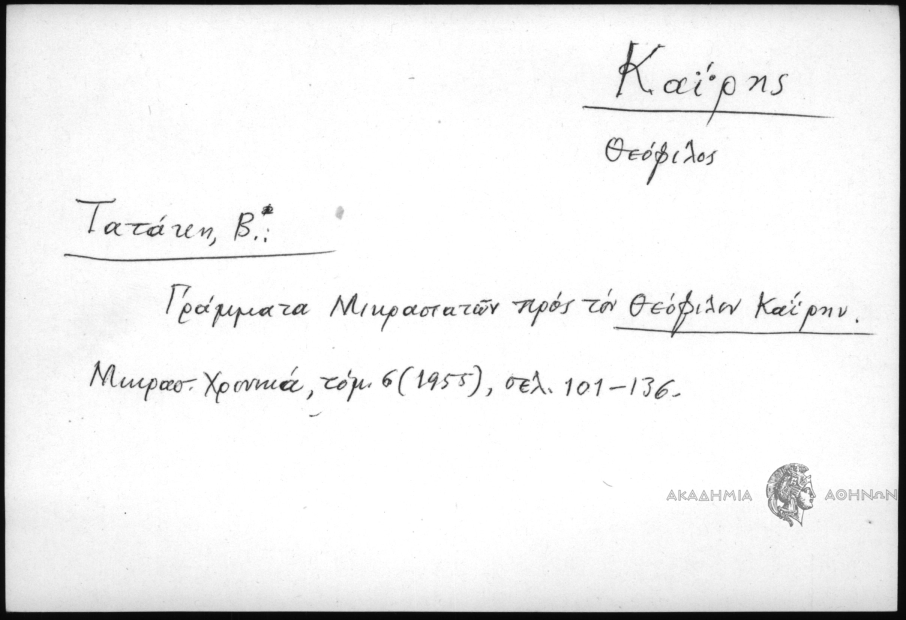 Καΐρης
Θεόφιλος
Τατάκη, Β.:
Γράμματα Μικρασιατῶν πρός τόν Θεόφιλον Καΐρην.
Μικρασ. Χρονικά, τόμ. 6 (1955), σελ. 101-136.
ΑΚΑΔΗΜΙΑ ΑΘΗΝΩΝ